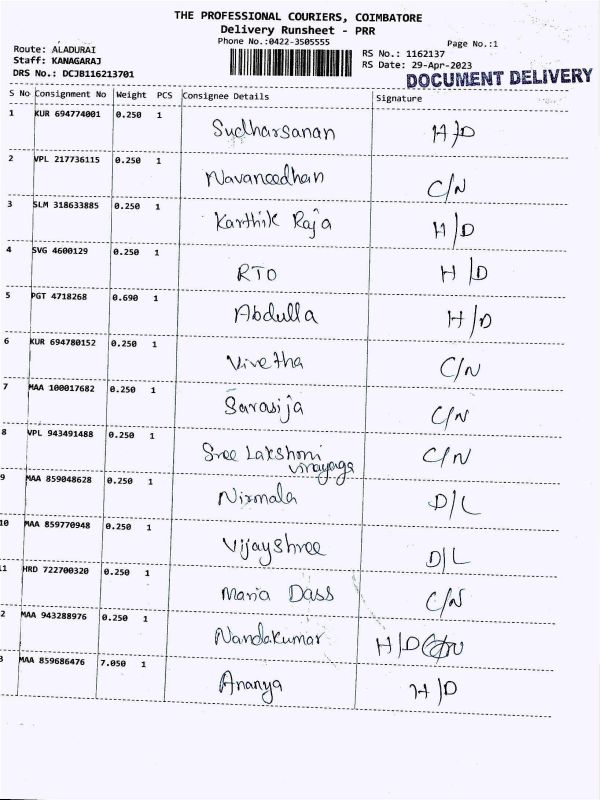 THE PROFESSIONAL COURIERS, COIMBATORE
Delivery Runsheet - PRR
Phone No.:0422-3505555
Page No.:1
Route: ALADURAI
Staff: KANAGARAJ
DRS No.: DCJB116213701
RS No.: 1162137
RS Date: 29-Apr-2023
DOCUMENT DELIVERY
S No Consignment No Weight PCS Consignee Details Signature
1 KUR 694774001 0.250 1 Sudharsanan H/D
2 VPL 217736115 0.250 1 Navaneedhan C/N
3 SLM 318633885 0.250 1 Karthik Raja H/D
4 SVG 4600129 0.250 1 RTO H/D
5 PGT 4718268 0.690 1 Abdulla H/D
6 KUR 694780152 0.250 1 Vivetha C/N
7 MAA 100017682 0.250 1 Sarasija C/N
8 VPL 943491488 0.250 1 Sree Lakshmi C/N
vinayaga
9 MAA 859048628 0.250 1 Nirmala D/L
10 MAA 859770948 0.250 1 Vijayshree D/L
1 HRD 722700320 0.250 1 Maria Dass C/N
2 MAA 943288976 0.250 1 Nandakumar H/D
3 MAA 859686476 7.050 1 Ananya H/D